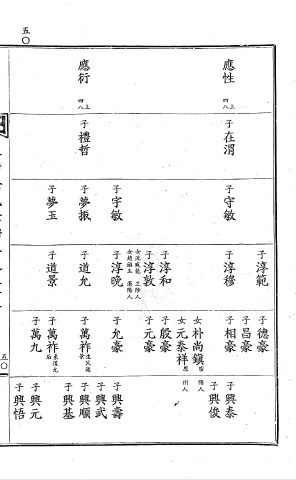 五〇
應性 上四八
應衍 上四八
子在渭
子禮哲
子守敏
子宇敏
子夢振
子夢玉
子淳範
子淳穆
子淳和
子淳敦
子淳晚
子道允
子道景
子德豪
子昌豪
子相豪
女朴尚鎮 密陽人
女元泰祥 原州人
子殷豪
子元豪
子允豪
子萬祚 生父道景
子萬祚 系道允后
子萬九
子興泰
子興俊
子興壽
子興武
子興順
子興基
子興元
子興悟
五〇